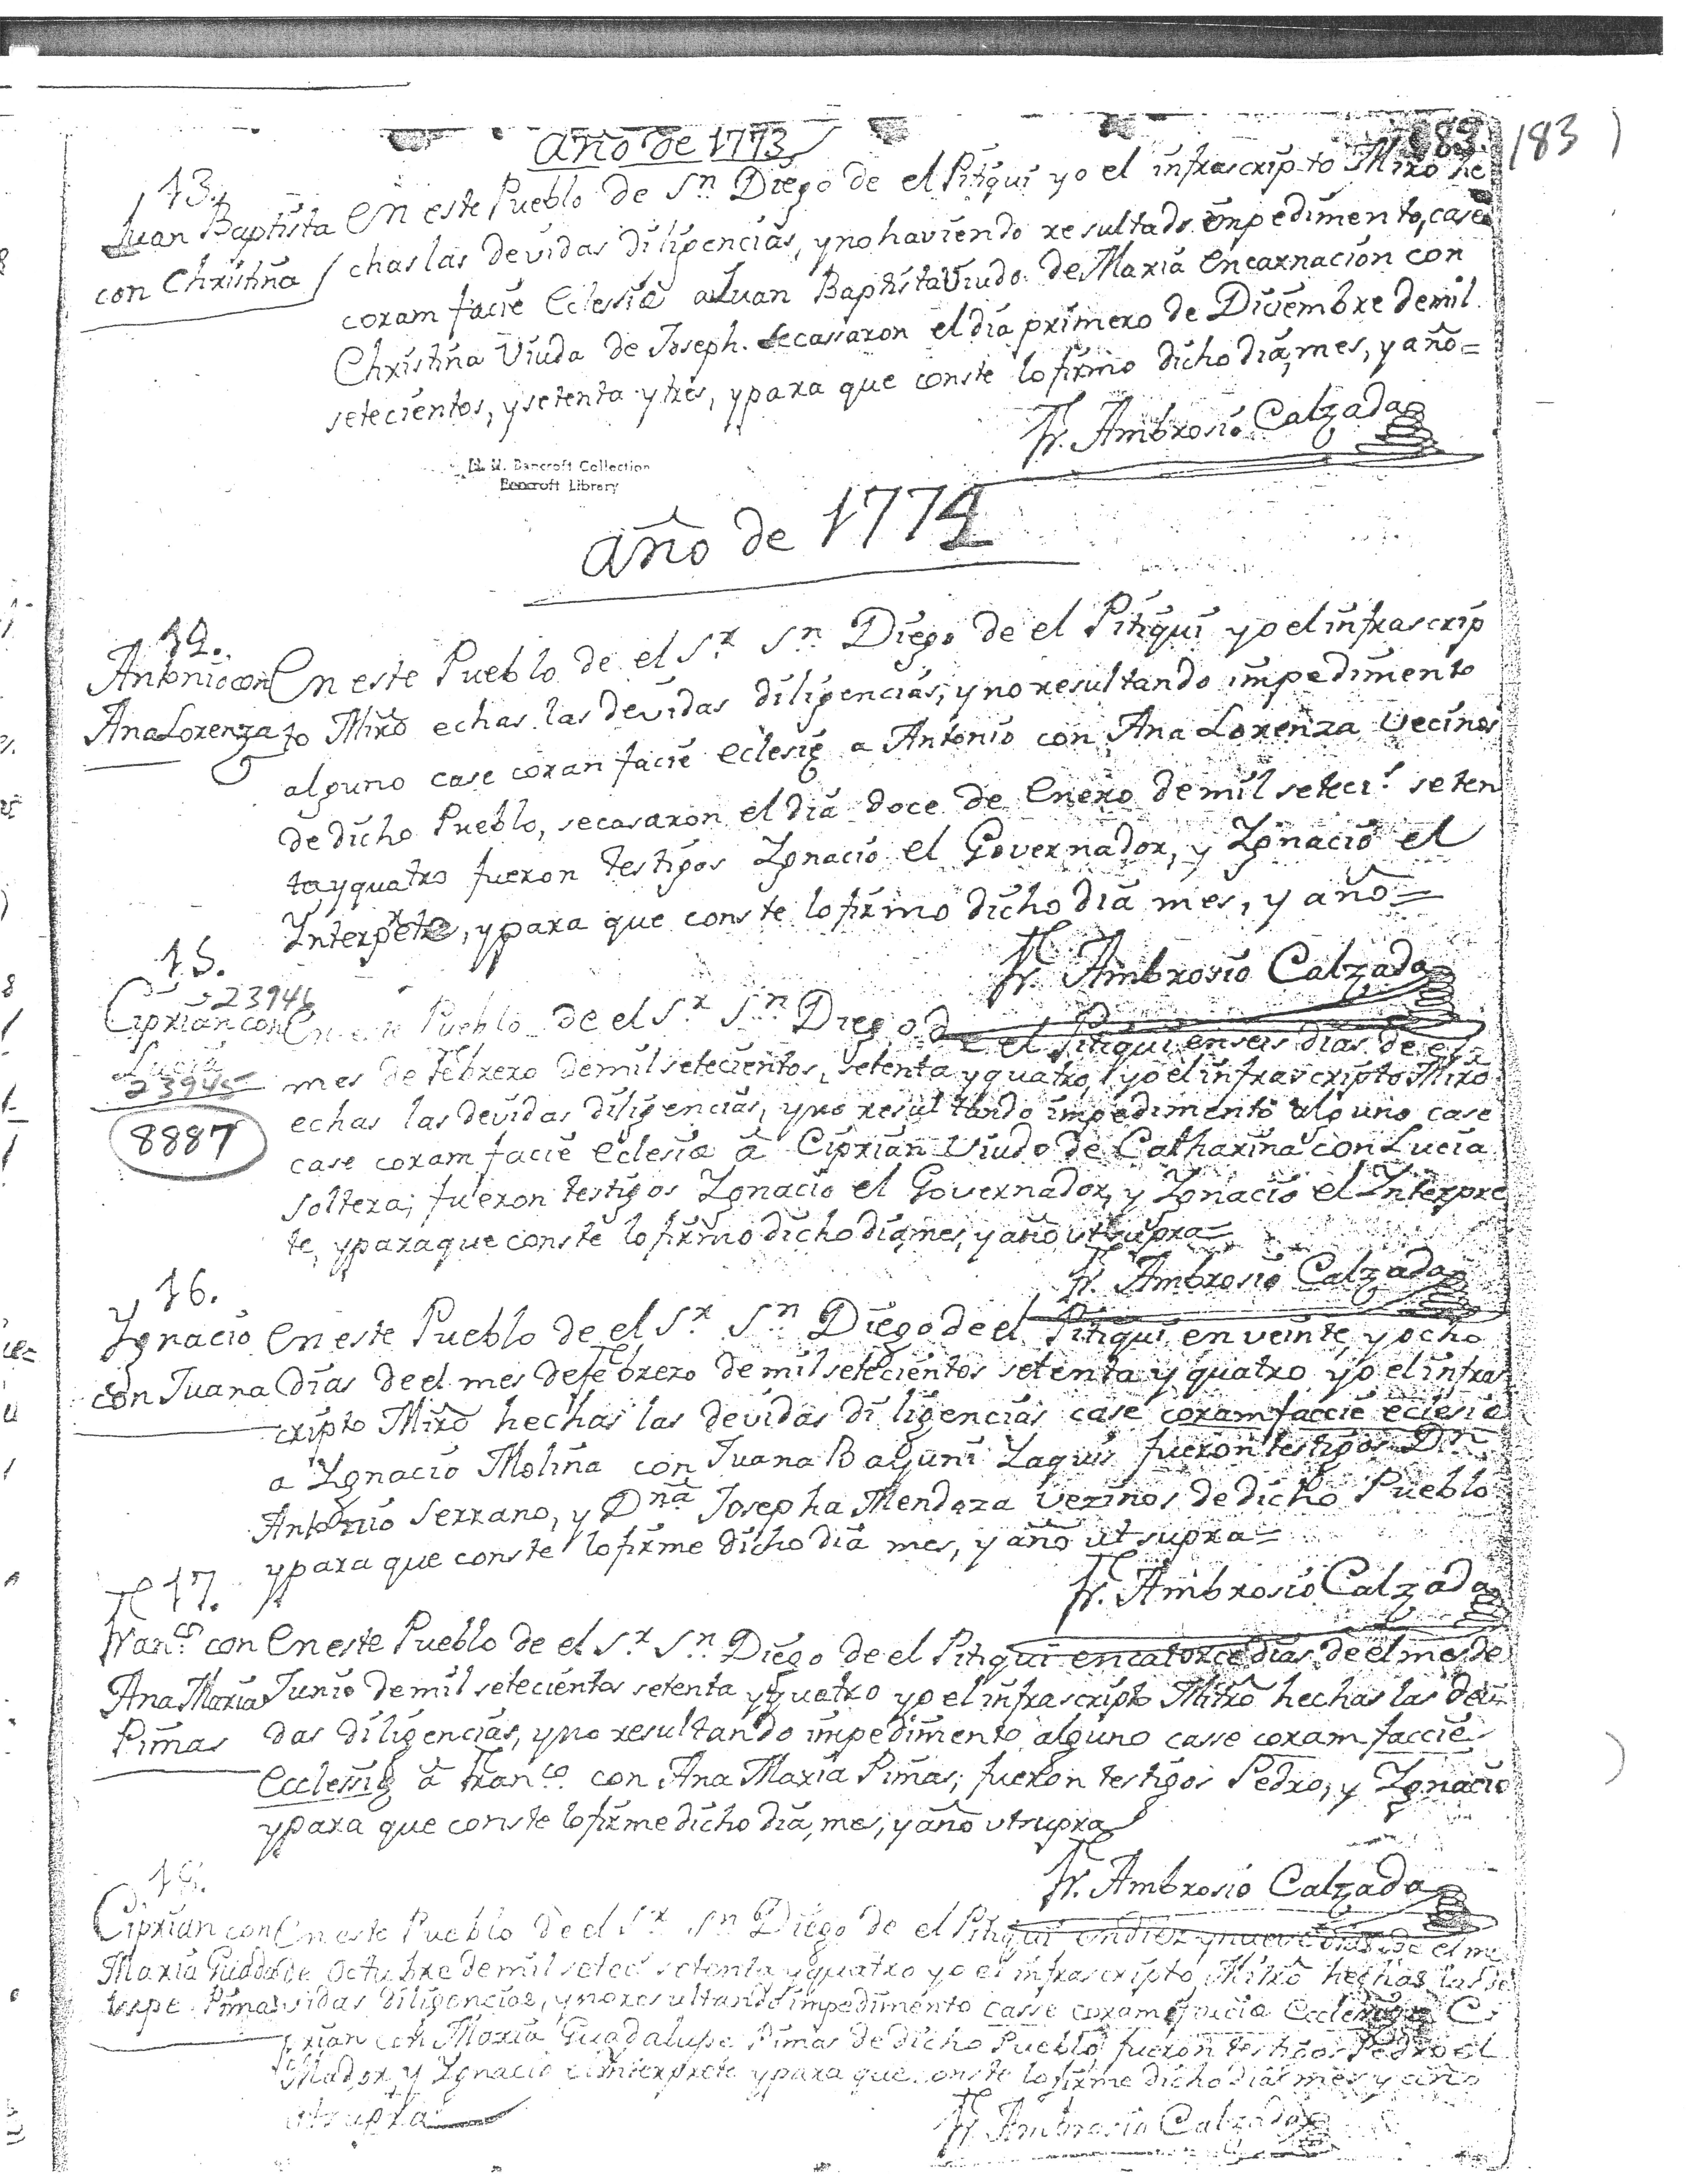 año de 1773
183
13.
Juan Baptista
con Christina
En este Pueblo de Sn. Diego de el Pitiqui yo el infrascripto Miño he
chas las devidas diligencias, y no haviendo resultado impedimento, case
coram facie Eclesia a Juan Baptista Viudo de Maria Encarnacion con
Christina Viuda de Joseph. se casaron el dia primero de Diciembre de mil
setecientos, y setenta y tres, y para que conste lo firmo dicho dia, mes, y año=
Fr. Ambrosio Calzada
H. H. Bancroft Collection
Bancroft Library
año de 1774
14.
Antonio con
Ana Lorenza
En este Pueblo de el Sr. Sn. Diego de el Pitiqui yo el infrascrip
to Miño echas las devidas diligencias, y no resultando impedimento
alguno case coran facie eclesię a Antonio con Ana Lorenza vecinos
de dicho Pueblo, se casaron el dia doce de Enero de mil setecs. seten
ta y quatro fueron testigos Ygnacio el Governador, y Ygnacio el
Interprete, y para que conste lo firmo dicho dia mes, y año=
Fr. Ambrosio Calzada
15.
23946
Ciprian con
Lucia
23945
8887
En este Pueblo de el Sr. Sn. Diego de el Pitiqui en seis dias de el
mes de Febrero de mil setecientos, setenta y quatro, yo el infrascripto Miño
echas las devidas diligencias, y no resultando impedimento alguno case
case coram facie eclesia â Ciprian Viudo de Catharina con Lucia
soltera; fueron testigos Ygnacio el Governador, y Ygnacio el Interpre
te, y para que conste lo firmo dicho dia, mes, y año ut supra=
Fr. Ambrosio Calzada
16.
Ygnacio
con Juana
En este Pueblo de el Sr. Sn. Diego de el Pitiqui en veinte, y ocho
dias de el mes de Febrero de mil setecientos setenta y quatro yo el infras
cripto Miño hechas las devidas diligencias case coram faccie eclesia
a Ygnacio Molina con Juana Bayuni Yaquis fueron testigos Dn.
Antonio Serrano, y Dna. Josepha Mendoza vezinos de dicho Pueblo
y para que conste lo firme dicho dia mes, y año ut supra=
Fr. Ambrosio Calzada
17.
Franco. con
Ana Maria
Pimas
En este Pueblo de el Sr. Sn. Diego de el Pitiqui en catorce dias de el mes de
Junio de mil setecientos setenta y quatro yo el infrascripto Miño hechas las devi
das diligencias, y no resultando impedimento alguno casse coram faccie
Ecclessię â Franco. con Ana Maria Pimas; fueron testigos Pedro, y Ygnacio
y para que conste lo firme dicho dia, mes, y año ut supra
Fr. Ambrosio Calzada
18.
Ciprian con
Maria Guada
lupe Pimas
En este Pueblo de el Sr. Sn. Diego de el Pitiqui en diez y nueve dias de el me
de Octubre de mil setec. setenta y quatro yo el infrascripto Miño hechas las de
vidas diligencias, y no resultando impedimento casse coram facia Ecclessię a Ci
prian con Maria Guadalupe Pimas de dicho Pueblo fueron testigos Pedro el
Mador, y Ygnacio el Interprete y para que conste lo firme dicho dia mes y año
ut supra
Fr. Ambrosio Calzada